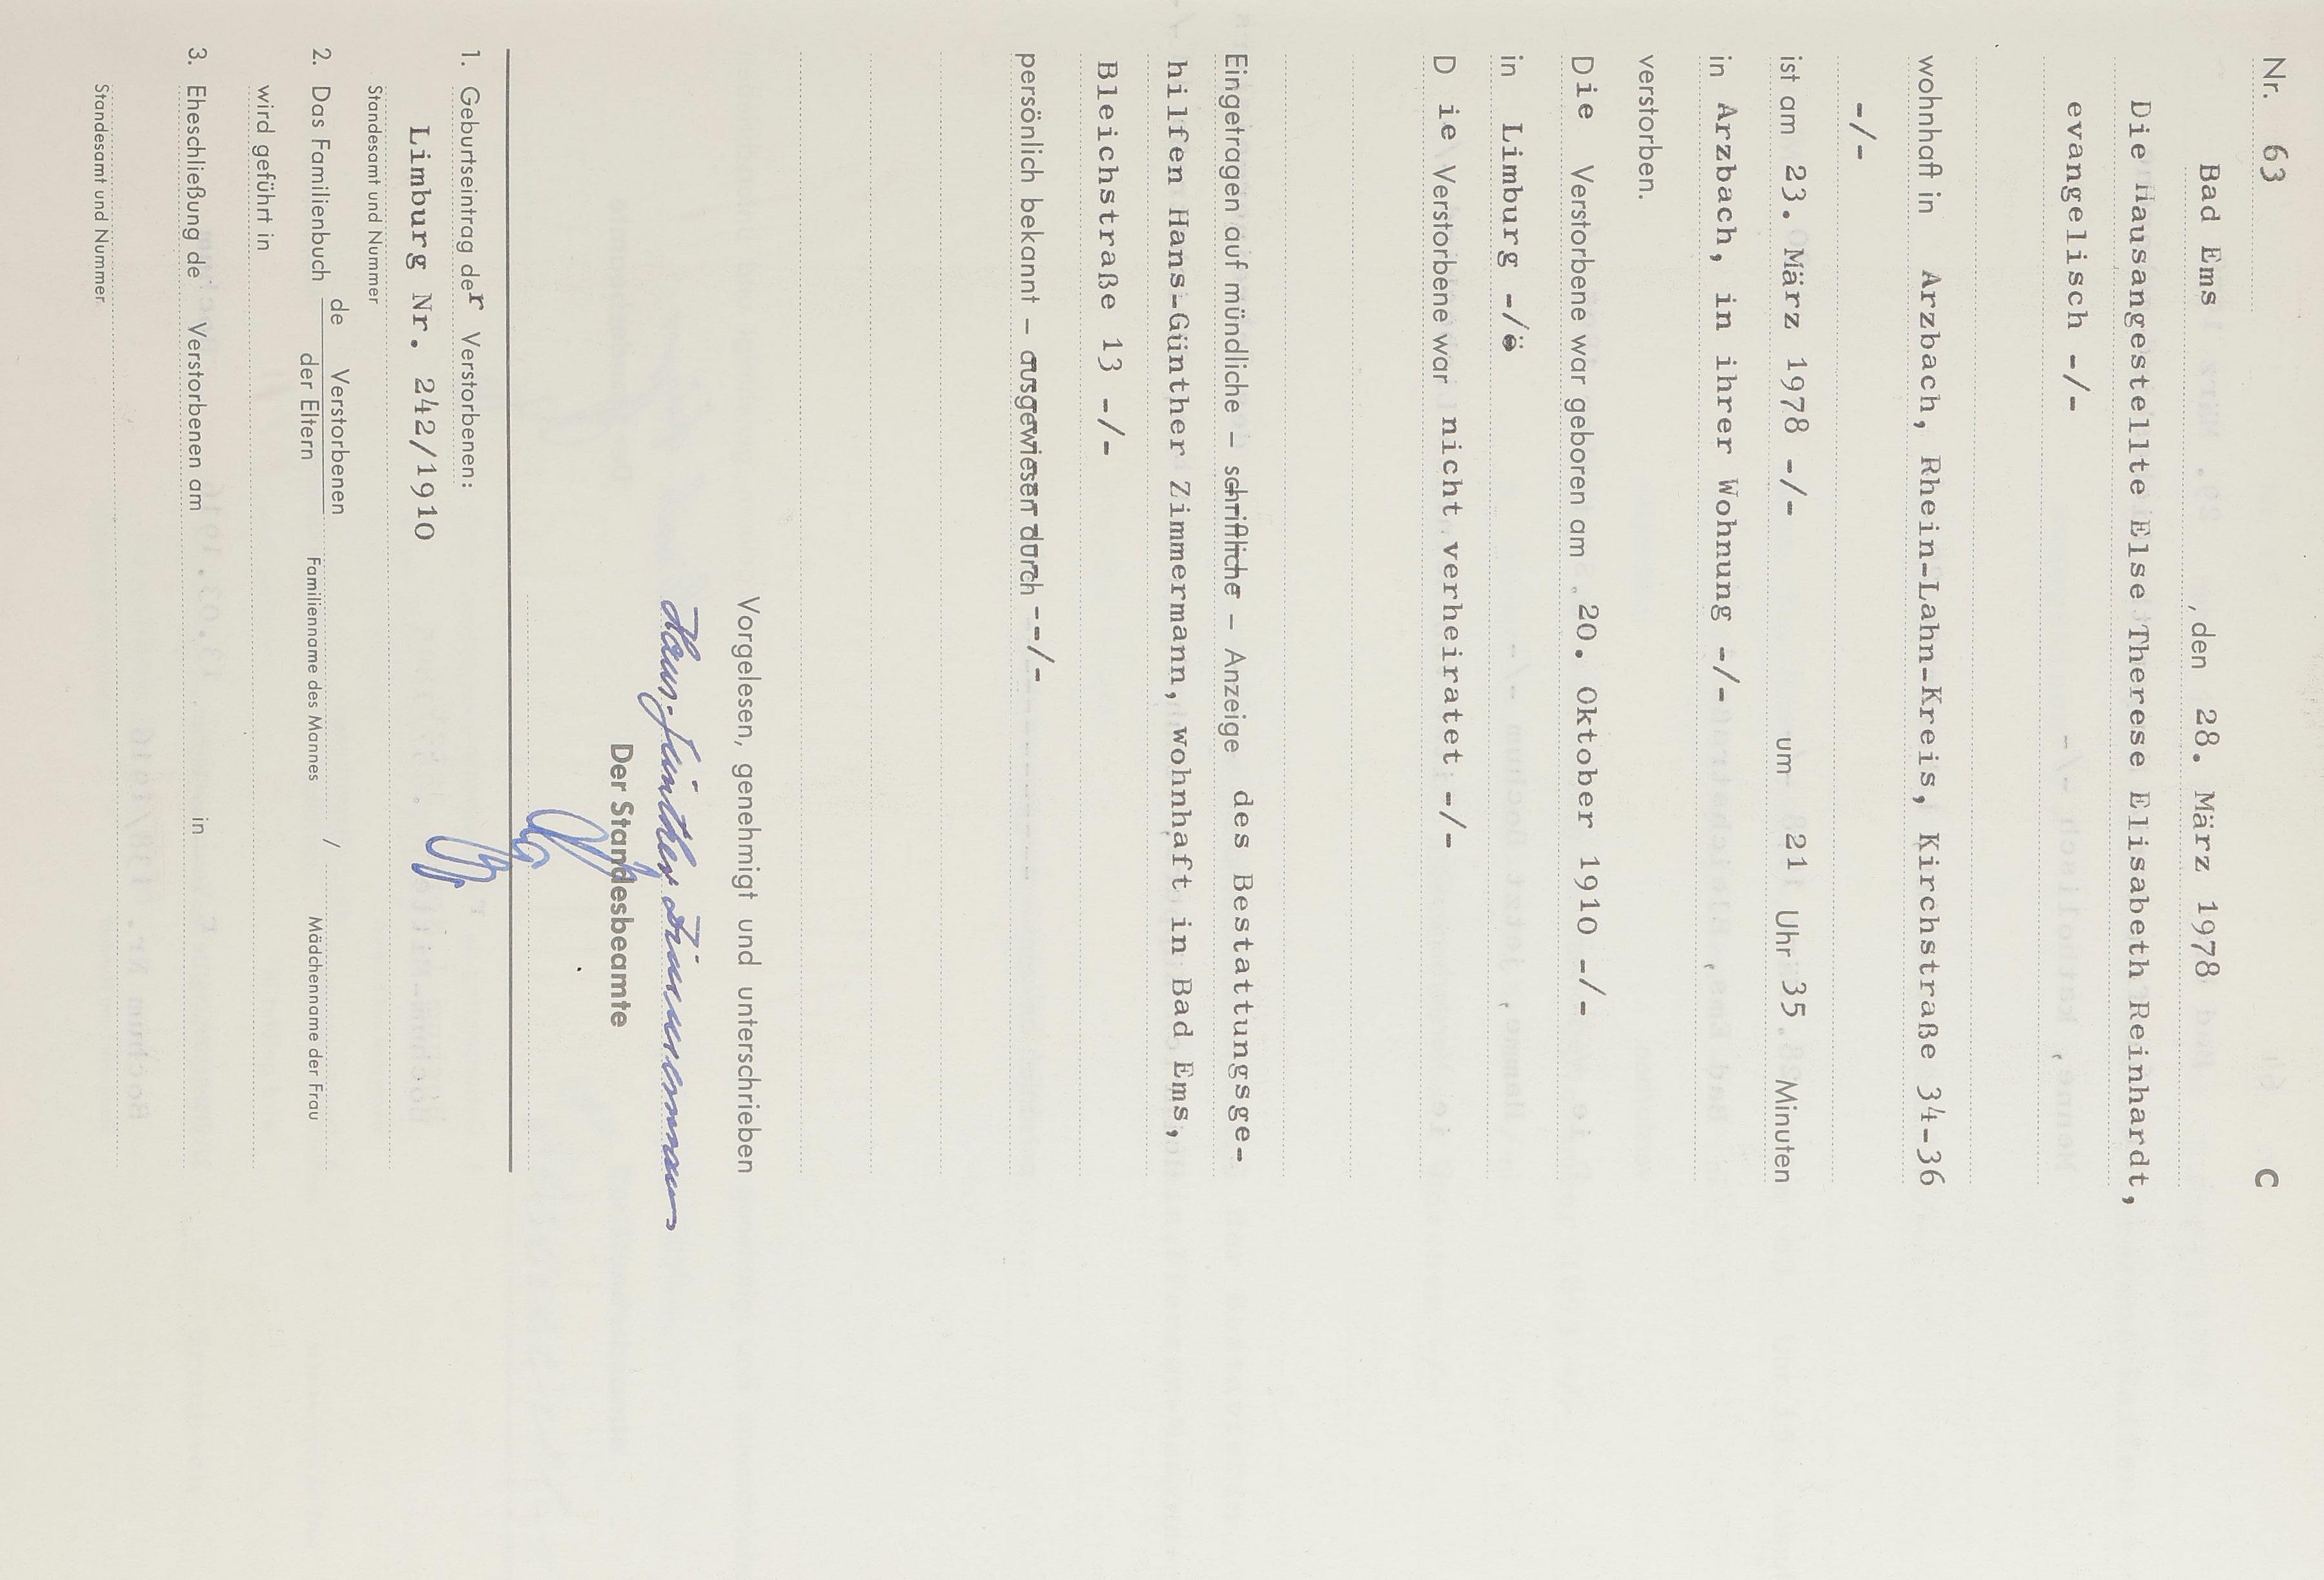 Nr. 63
C
Bad Ems, den 28. März 1978
Die Hausangestellte Else Therese Elisabeth Reinhardt,
evangelisch -/-
wohnhaft in Arzbach, Rhein-Lahn-Kreis, Kirchstraße 34-36
-/-
ist am 23. März 1978 -/- um 21 Uhr 35 Minuten
in Arzbach, in ihrer Wohnung -/-
verstorben.
Die Verstorbene war geboren am 20. Oktober 1910 -/-
in Limburg -/-
D ie Verstorbene war nicht verheiratet -/-
Eingetragen auf mündliche – schriftliche – Anzeige des Bestattungsge-
hilfen Hans-Günther Zimmermann, wohnhaft in Bad Ems,
Bleichstraße 13 -/-
persönlich bekannt – ausgewiesen durch --/-
Vorgelesen, genehmigt und unterschrieben
Hans-Günther Zimmermann
Der Standesbeamte
1. Geburtseintrag der Verstorbenen:
Limburg Nr. 242/1910
Standesamt und Nummer
2. Das Familienbuch de Verstorbenen
der Eltern
Familienname des Mannes / Mädchenname der Frau
wird geführt in
3. Eheschließung de Verstorbenen am in
Standesamt und Nummer